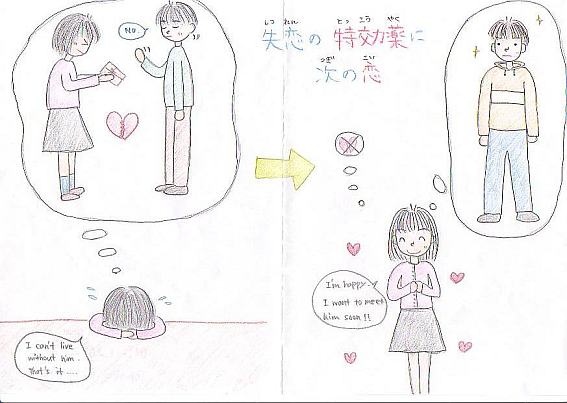 NO.
しつ れん とっ こう やく
失恋の 特効薬に
つぎ こい
次の恋
I can't live
without him.
That's it ....
I'm happy.
I want to meet
him soon!!